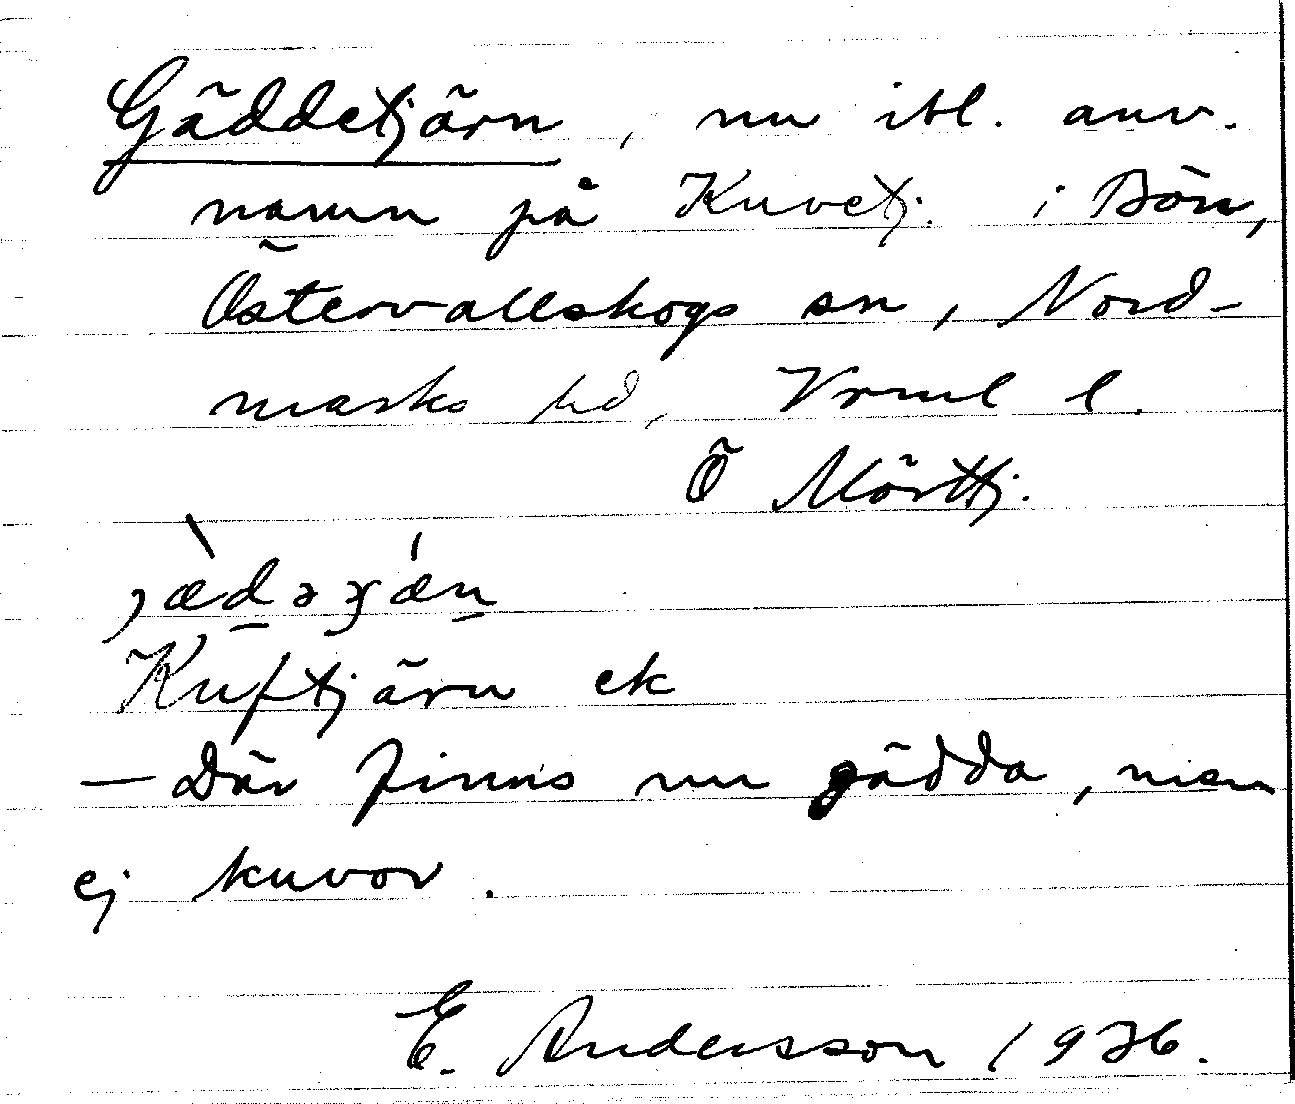 Gäddetjärn, nu ibl. anv.
namn på Kuvetj. i Bön,
Östervallskogs sn, Nord-
marks hd, Vrml l.
Ö Mörttj.
Kuftjärn ek
— Där finns nu gädda, men
ej kuvor.
E. Andersson 1936.